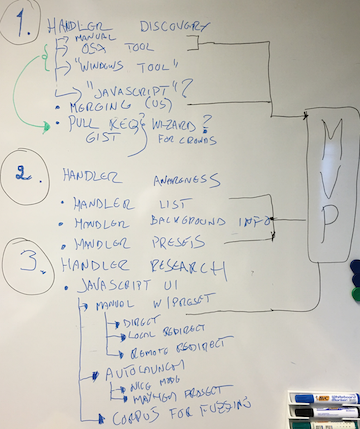 1. HANDLER DISCOVERY
MANUAL
OSX TOOL
"WINDOWS TOOL"
"JAVASCRIPT"?
• MERGING (US)
• PULL REQ? WIZARD?
GIST FOR CROWDS
2. HANDLER AWARENESS
• HANDLER LIST
• HANDLER BACKGROUND INFO
• HANDLER PRESETS
3. HANDLER RESEARCH
• JAVASCRIPT UI
MANUAL W/PRESET
DIRECT
LOCAL REDIRECT
REMOTE REDIRECT
AUTOLAUNCH
NICE MODE
MAYHEM PROJECT
CORPUS FOR FUZZING
MVP
BIC